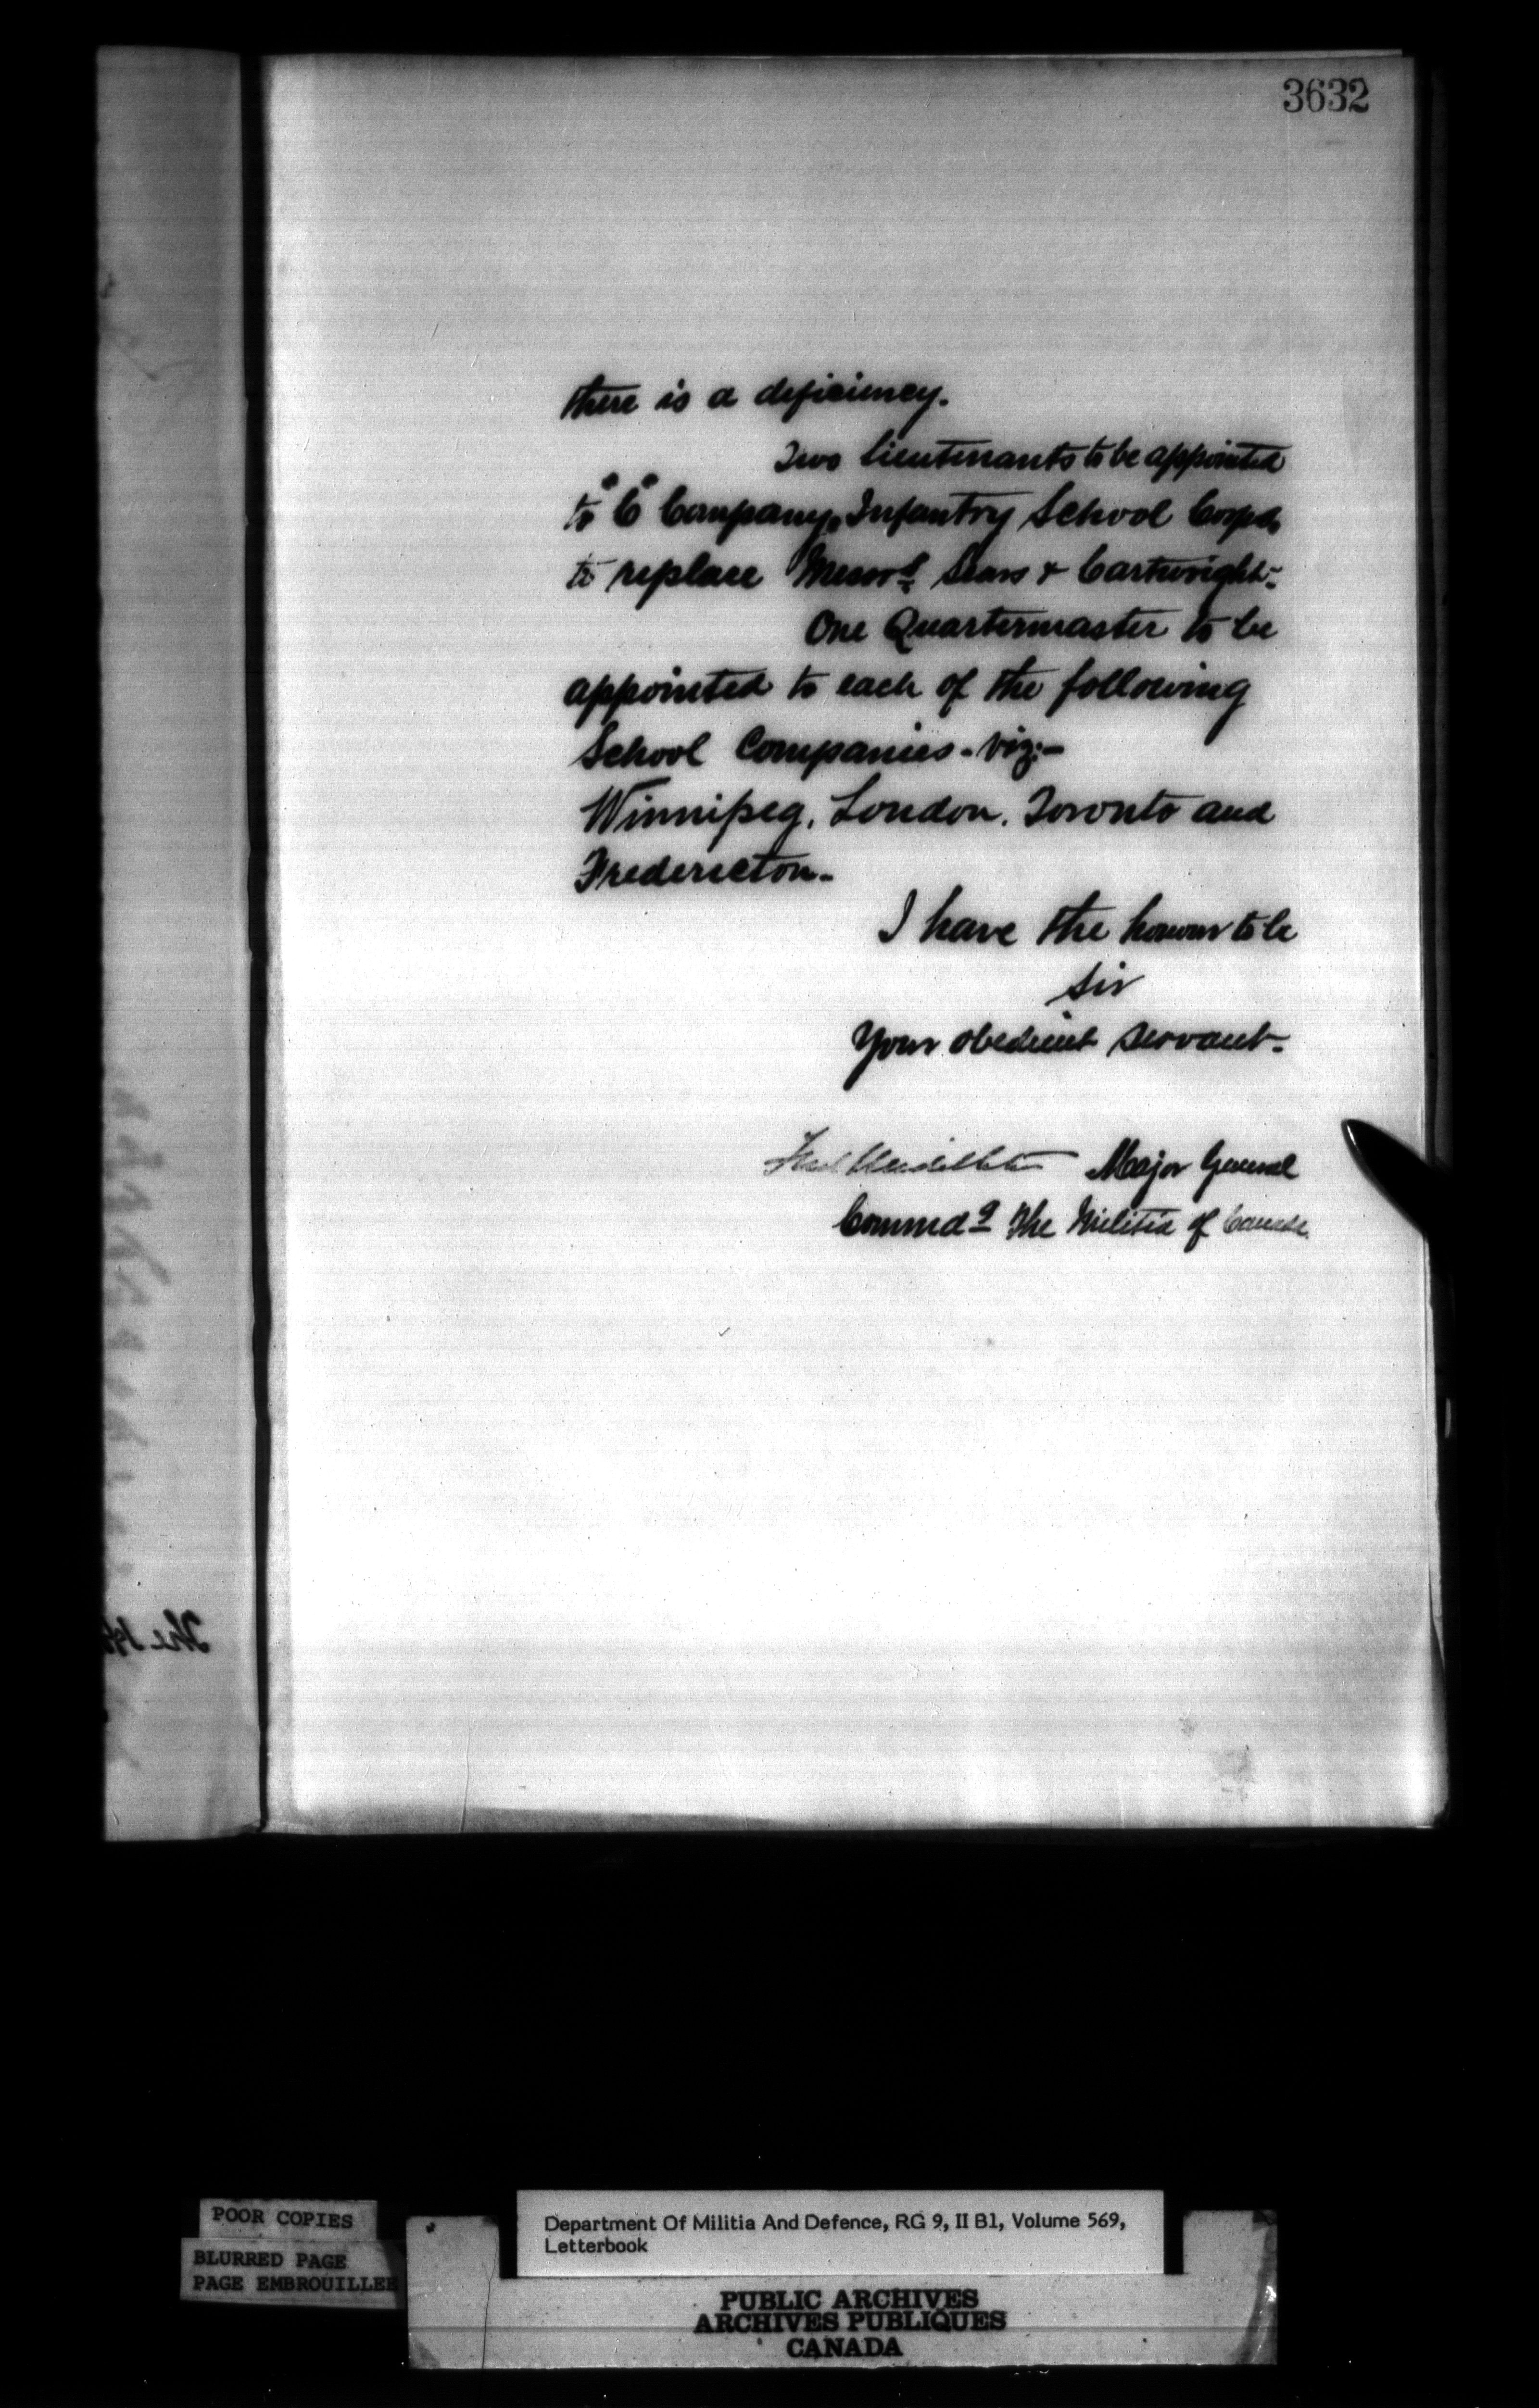 3632
there is a deficiency.
Two lieutenants to be appointed
to "C" Company, Infantry School Corps,
to replace Messrs Sears & Cartwright.
One Quartermaster to be
appointed to each of the following
School Companies - viz:-
Winnipeg, London, Toronto and
Fredericton.
I have the honour to be
Sir
Your obedient servant.
Fred Middleton Major General
Commdg The Militia of Canada
The
POOR COPIES
BLURRED PAGE
PAGE EMBROUILLEE
Department Of Militia And Defence, RG 9, II B1, Volume 569,
Letterbook
PUBLIC ARCHIVES
ARCHIVES PUBLIQUES
CANADA